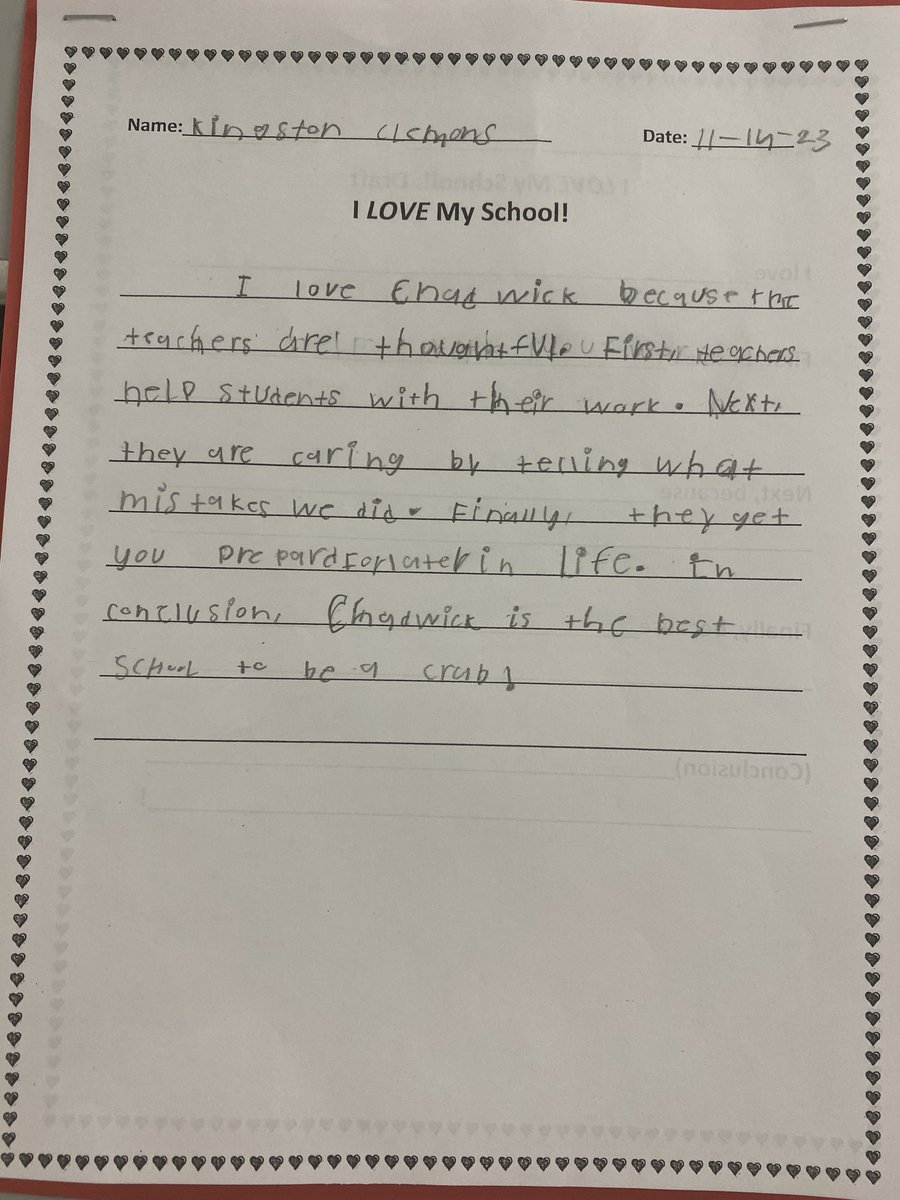 Name: Kingston Clemons Date: 11-14-23
I LOVE My School!
I love Chadwick because the
teachers are thoughtful. First, teachers
help students with their work. Next,
they are caring by telling what
mistakes we did. Finally, they get
you prepard for later in life. In
conclusion, Chadwick is the best
School to be a crab!